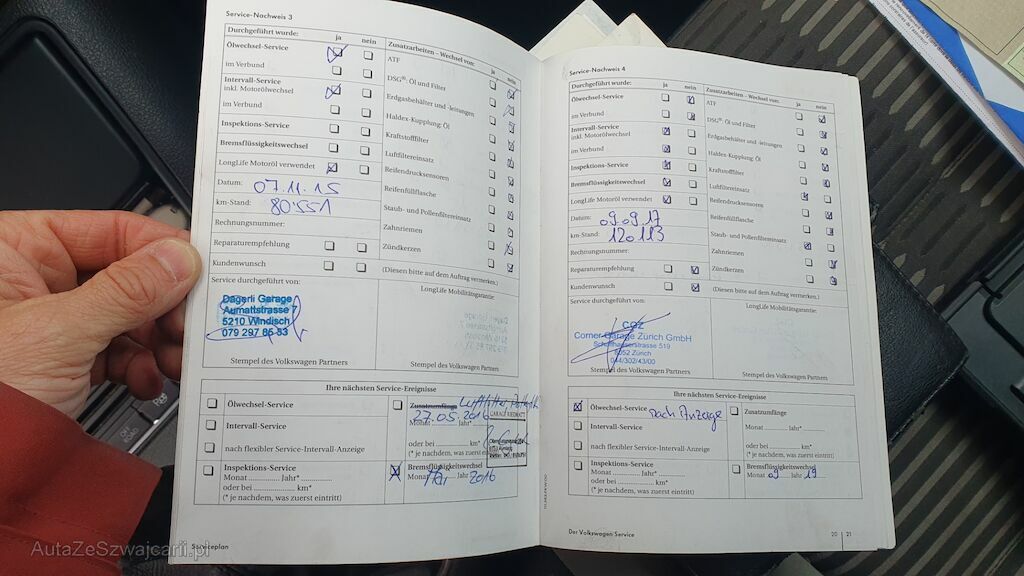 Service-Nachweis 3
Durchgeführt wurde: ja nein
Ölwechsel-Service
im Verbund
Intervall-Service
inkl. Motorölwechsel
im Verbund
Inspektions-Service
Bremsflüssigkeitswechsel
LongLife Motoröl verwendet
Datum: 07.11.15
km-Stand: 80'551
Rechnungsnummer:
Reparaturempfehlung
Kundenwunsch
Zusatzarbeiten – Wechsel von: ja nein
ATF
DSG®: Öl und Filter
Erdgasbehälter und -leitungen
Haldex-Kupplung: Öl
Kraftstofffilter
Luftfiltereinsatz
Reifendrucksensoren
Reifenfüllflasche
Staub- und Pollenfiltereinsatz
Zahnriemen
Zündkerzen
(Diesen bitte auf dem Auftrag vermerken.)
Service durchgeführt von:
Dagerli Garage
Aumattstrasse 7
5210 Windisch
079 297 65 53
Stempel des Volkswagen Partners
LongLife Mobilitätsgarantie:
Stempel des Volkswagen Partners
Ihre nächsten Service-Ereignisse
Ölwechsel-Service
Intervall-Service
nach flexibler Service-Intervall-Anzeige
Inspektions-Service
Monat Jahr*
oder bei km*
(* je nachdem, was zuerst eintritt)
Zusatzumfänge
27.05.2016
Monat Jahr*
oder bei km*
(* je nachdem, was zuerst eintritt)
Bremsflüssigkeitswechsel
Monat Mai Jahr 2016
Serviceplan
Service-Nachweis 4
Durchgeführt wurde: ja nein
Ölwechsel-Service
im Verbund
Intervall-Service
inkl. Motorölwechsel
im Verbund
Inspektions-Service
Bremsflüssigkeitswechsel
LongLife Motoröl verwendet
Datum: 09.09.17
km-Stand: 120'113
Rechnungsnummer:
Reparaturempfehlung
Kundenwunsch
Zusatzarbeiten – Wechsel von: ja nein
ATF
DSG®: Öl und Filter
Erdgasbehälter und -leitungen
Haldex-Kupplung: Öl
Kraftstofffilter
Luftfiltereinsatz
Reifendrucksensoren
Reifenfüllflasche
Staub- und Pollenfiltereinsatz
Zahnriemen
Zündkerzen
(Diesen bitte auf dem Auftrag vermerken.)
Service durchgeführt von:
CGZ
Corner-Garage Zürich GmbH
Schaffhauserstrasse 519
8052 Zürich
044/302/43/00
Stempel des Volkswagen Partners
LongLife Mobilitätsgarantie:
Stempel des Volkswagen Partners
Ihre nächsten Service-Ereignisse
Ölwechsel-Service nach Anzeige
Intervall-Service
nach flexibler Service-Intervall-Anzeige
Inspektions-Service
Monat Jahr*
oder bei km*
(* je nachdem, was zuerst eintritt)
Zusatzumfänge
Monat Jahr*
oder bei km*
(* je nachdem, was zuerst eintritt)
Bremsflüssigkeitswechsel
Monat 09 Jahr 19
Der Volkswagen Service
20 21
AutaZeSzwajcarii.pl